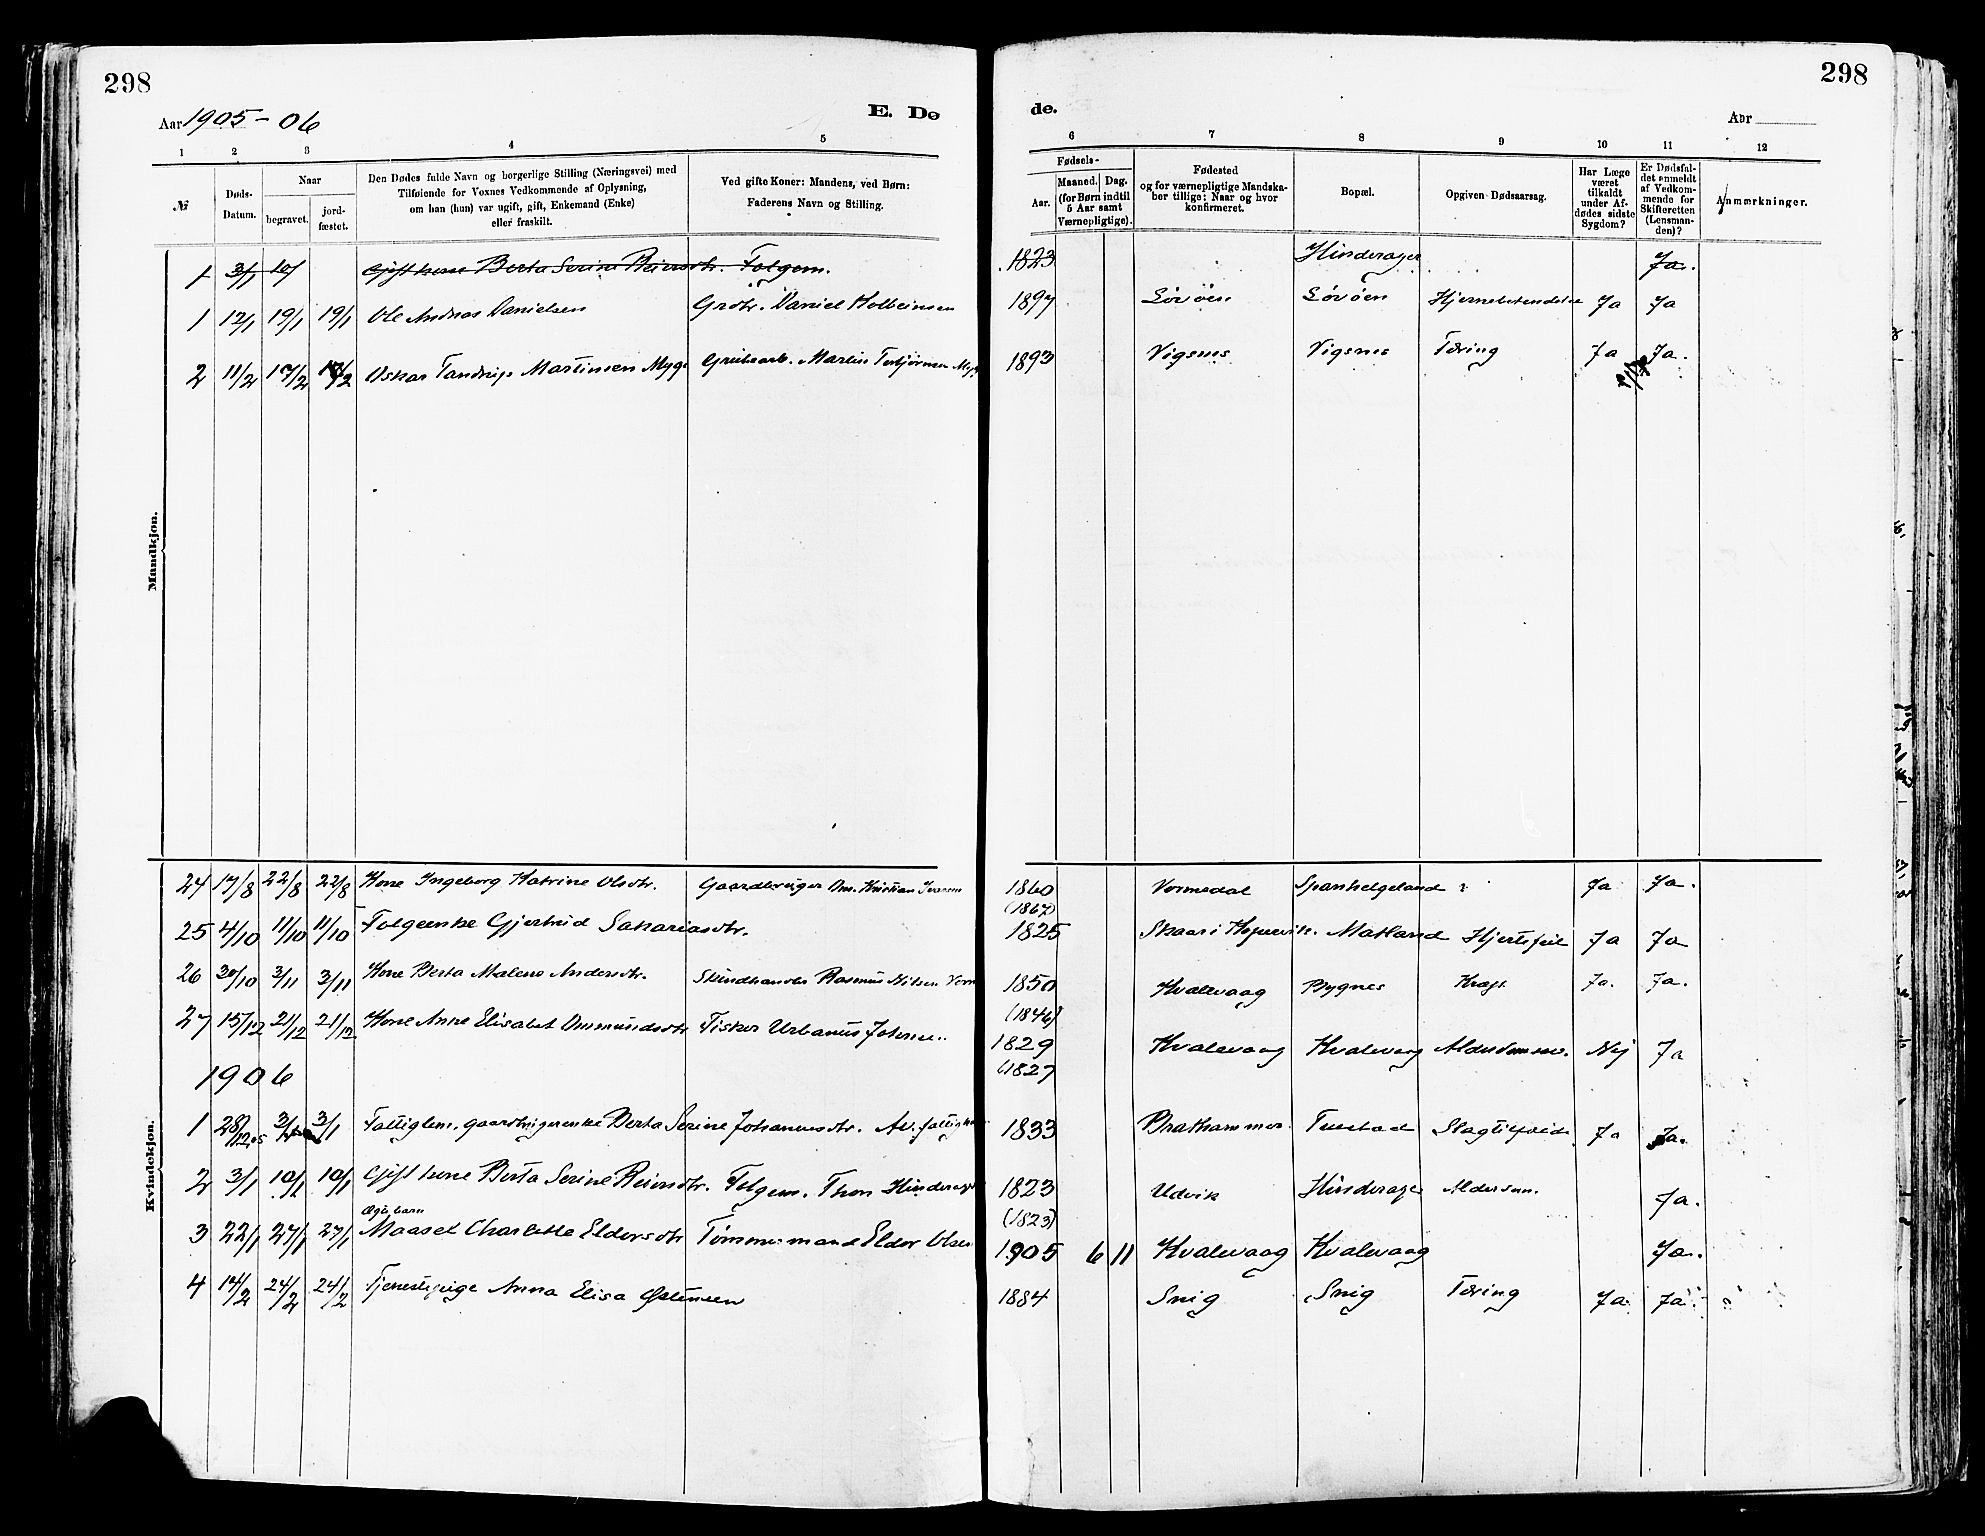 298
298
Aar 1905-06
E. Dø
de.
Aar
1 2 3 4 5 6 7 8 9 10 11 12
№
Døds-Datum.
Naar
begravet.
jord-fæstet.
Den Dødes fulde Navn og borgerlige Stilling (Næringsvei) med
Tilføiende for Voxnes Vedkommende af Oplysning,
om han (hun) var ugift, gift, Enkemand (Enke)
eller fraskilt.
Ved gifte Koner: Mandens, ved Børn:
Faderens Navn og Stilling.
Fødsels-
Aar.
Maaned. Dag.
(for Børn indtil
5 Aar samt
Værnepligtige).
Fødested
og for værnepligtige Mandska-
ber tillige: Naar og hvor
konfirmeret.
Bopæl.
Opgiven Dødsaarsag.
Har Læge
været
tilkaldt
under Af-
dødes sidste
Sygdom?
Er Dødsfal-
det anmeldt
af Vedkom-
mende for
Skifteretten
(Lensman-
den)?
Anmærkninger.
Mandkjøn.
1 3/1 10/ Gift kone Berta Serine Reiersdtr. Folgem. 1823 Hinderager Ja.
1 12/1 19/1 19/1 Ole Andreas Danielsen Grdbr. Daniel 1897 Ja Ja
2 11/2 17/2 17/2 Oskar Martinsen Myge Grubearb. Martin Torbjørnsen 1893 Vigsnes Vigsnes Tæring Ja Ja.
Kvindekjøn.
24 17/8 22/8 22/8 Kone Ingeborg Katrine Olsdtr. Gaardbruger Kristian 1860 Vormedal Spanhelgeland ? Ja Ja.
(1867)
25 4/10 11/10 11/10 Folgeenke Gjertrud Sakariasdtr. 1825 Skaar i Matland Hjertefeil Ja Ja
26 30/10 3/11 3/11 Kone Berta Malene Andersdtr. Skindhandler Rasmus Nilsen 1850 Kvalevaag Bygnes Kræft Ja. Ja.
(1846)
27 15/12 21/12 21/12 Kone Anne Elisabet Ommundsdtr Fisker Urbanus Johnsen 1829 Kvalevaag Kvalevaag Nej Ja
(1827
1906
1 28/12 05 3/1 3/1 Fattiglem. gaardbrugerenke Berta Serine Johannesdtr. 1833 Brathammer Ja Ja.
2 3/1 10/1 10/1 Gift kone Berta Serine Reiersdtr. Folgem. Thor Hinderager 1823 Udvik Hinderager Ja.
(1823)
Ægte barn
3 22/1 27/1 27/1 Charlotte Eldorsdtr Tømmermand Eldor Olsen 1905 6 11 Kvalevaag Kvalevaag Ja.
4 14/2 24/2 24/2 Tjenestepige Anna Elisa Østensen 1884 Snig Snig Tæring Ja Ja